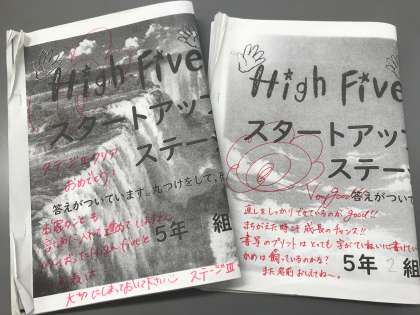 High Five
スタートアップ
ステー
ステージⅡクリア
おめでとう!
答えがついています。丸つけをして、
5年 組
ステージⅢ
High Five
スタートアッ
ステー
Very good
答えがついて
直しをしっかりできているのがgood!!
まちがえた時こそ成長のチャンス!!
書写のプリントはとても字がていねいに書けてい
かめは飼っているのかな?
また名前おしえてね〜。
5年 2 組